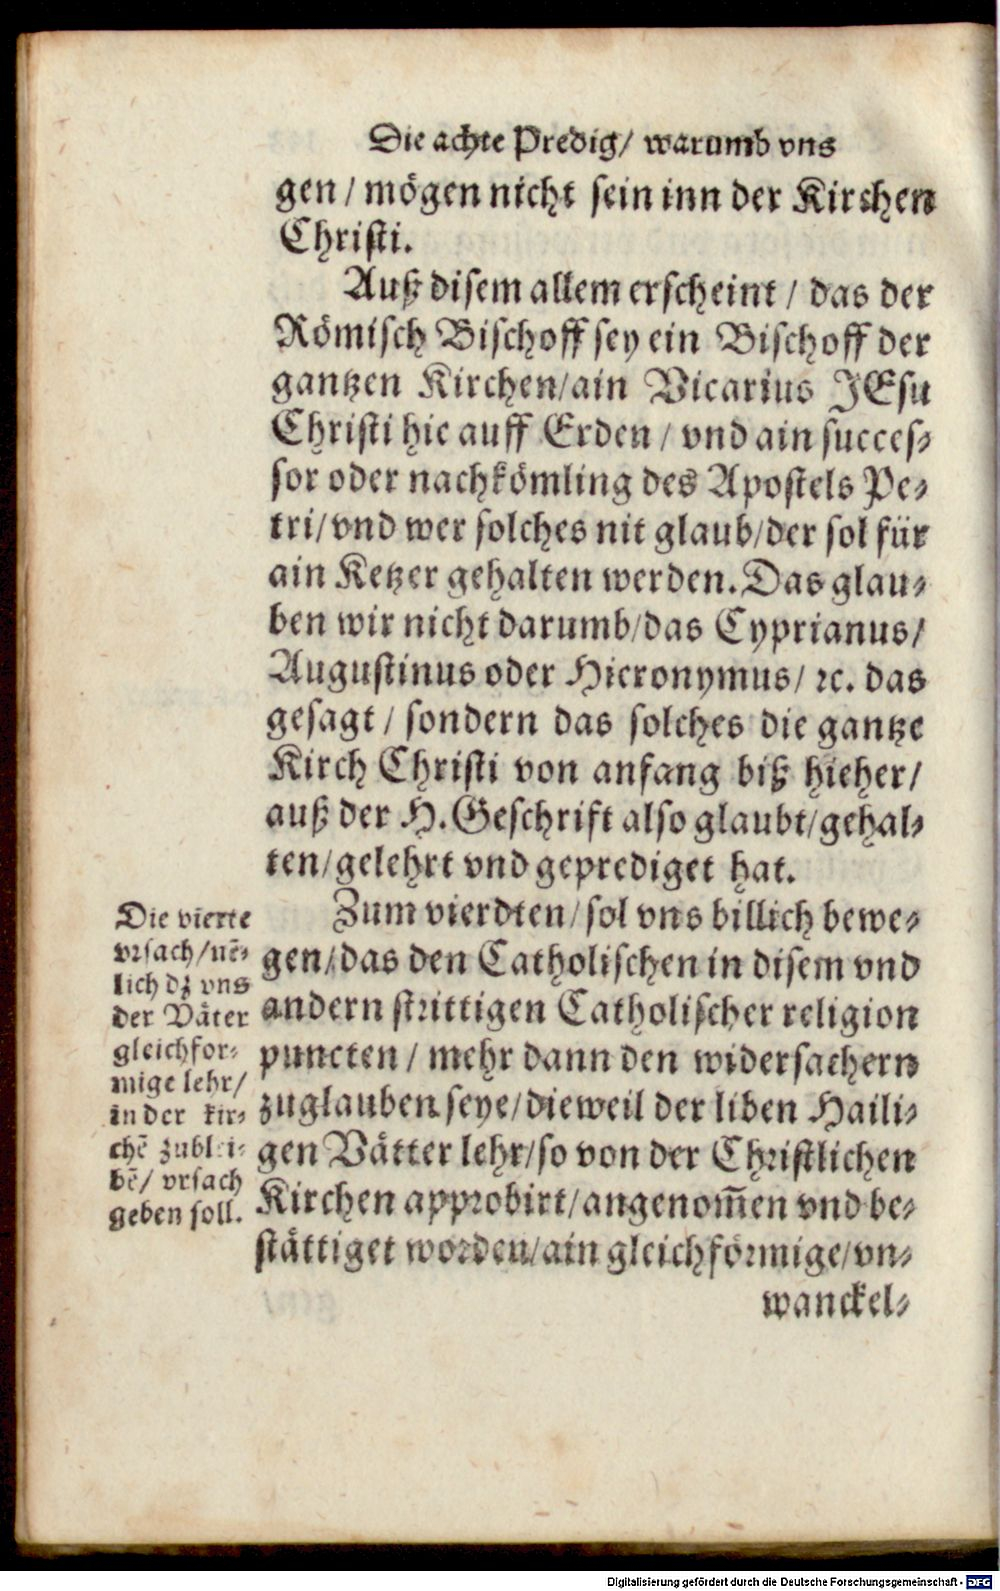 Die achte Predig/ warumb vns
gen / mögen nicht sein inn der Kirchen
Christi.
Auß disem allem erscheint / das der
Römisch Bischoff sey ein Bischoff der
gantzen Kirchen/ain Vicarius JEsu
Christi hie auff Erden / vnd ain succes⸗
sor oder nachkömling des Apostels Pe⸗
tri/vnd wer solches nit glaub/der sol für
ain Ketzer gehalten werden. Das glau⸗
ben wir nicht darumb/das Cyprianus/
Augustinus oder Hieronymus/ ꝛc. das
gesagt / sondern das solches die gantze
Kirch Christi von anfang biß hieher/
auß der H. Geschrift also glaubt/gehal⸗
ten/gelehrt vnd geprediget hat.
Zum vierdten/sol vns billich bewe⸗
gen/das den Catholischen in disem vnd
andern strittigen Catholischer religion
puncten / mehr dann den widersachern
zuglauben seye/dieweil der liben Haili⸗
gen Vätter lehr/so von der Christlichen
Kirchen approbirt/angenom̃en vnd be⸗
stättiget worden/ain gleichförmige/vn⸗
wanckel⸗
Die vierte
vrsach/nẽ⸗
lich dz vns
der Väter
gleichfor⸗
mige lehr/
in der kir⸗
chẽ zublei⸗
bẽ/ vrsach
geben soll.
Digitalisierung gefördert durch die Deutsche Forschungsgemeinschaft - DFG